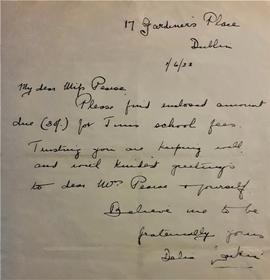 17 Gardiner's Place
Dublin
My dear Miss Pearse.
Please find enclosed amount
due for Finns school fees.
Trusting you are keeping well
and with kindest greetings
to dear Mrs Pearse & yourself
Believe me to be
fraternally yours
Delia Larkin